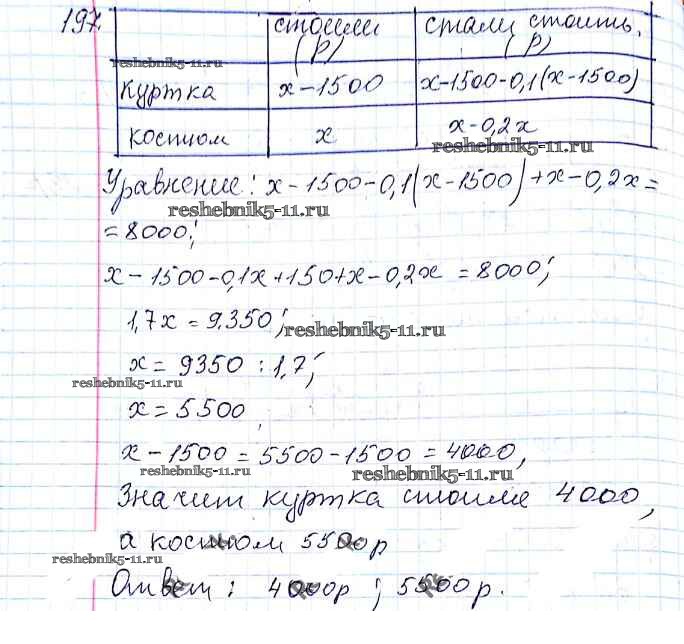 197. стоили (р) стали стоить (р)
reshebnik5-11.ru
куртка x-1500 x-1500-0,1(x-1500)
костюм x x-0,2x
reshebnik5-11.ru
Уравнение: x-1500-0,1(x-1500)+x-0,2x=
reshebnik5-11.ru
=8000;
x-1500-0,1x+150+x-0,2x=8000;
1,7x=9.350;
reshebnik5-11.ru
x=9350:1,7;
reshebnik5-11.ru
x=5500
x-1500=5500-1500=4000,
reshebnik5-11.ru
reshebnik5-11.ru
Значит куртка стоила 4000,
а костюм 5500р
reshebnik5-11.ru
Ответ: 4000р; 5500р.